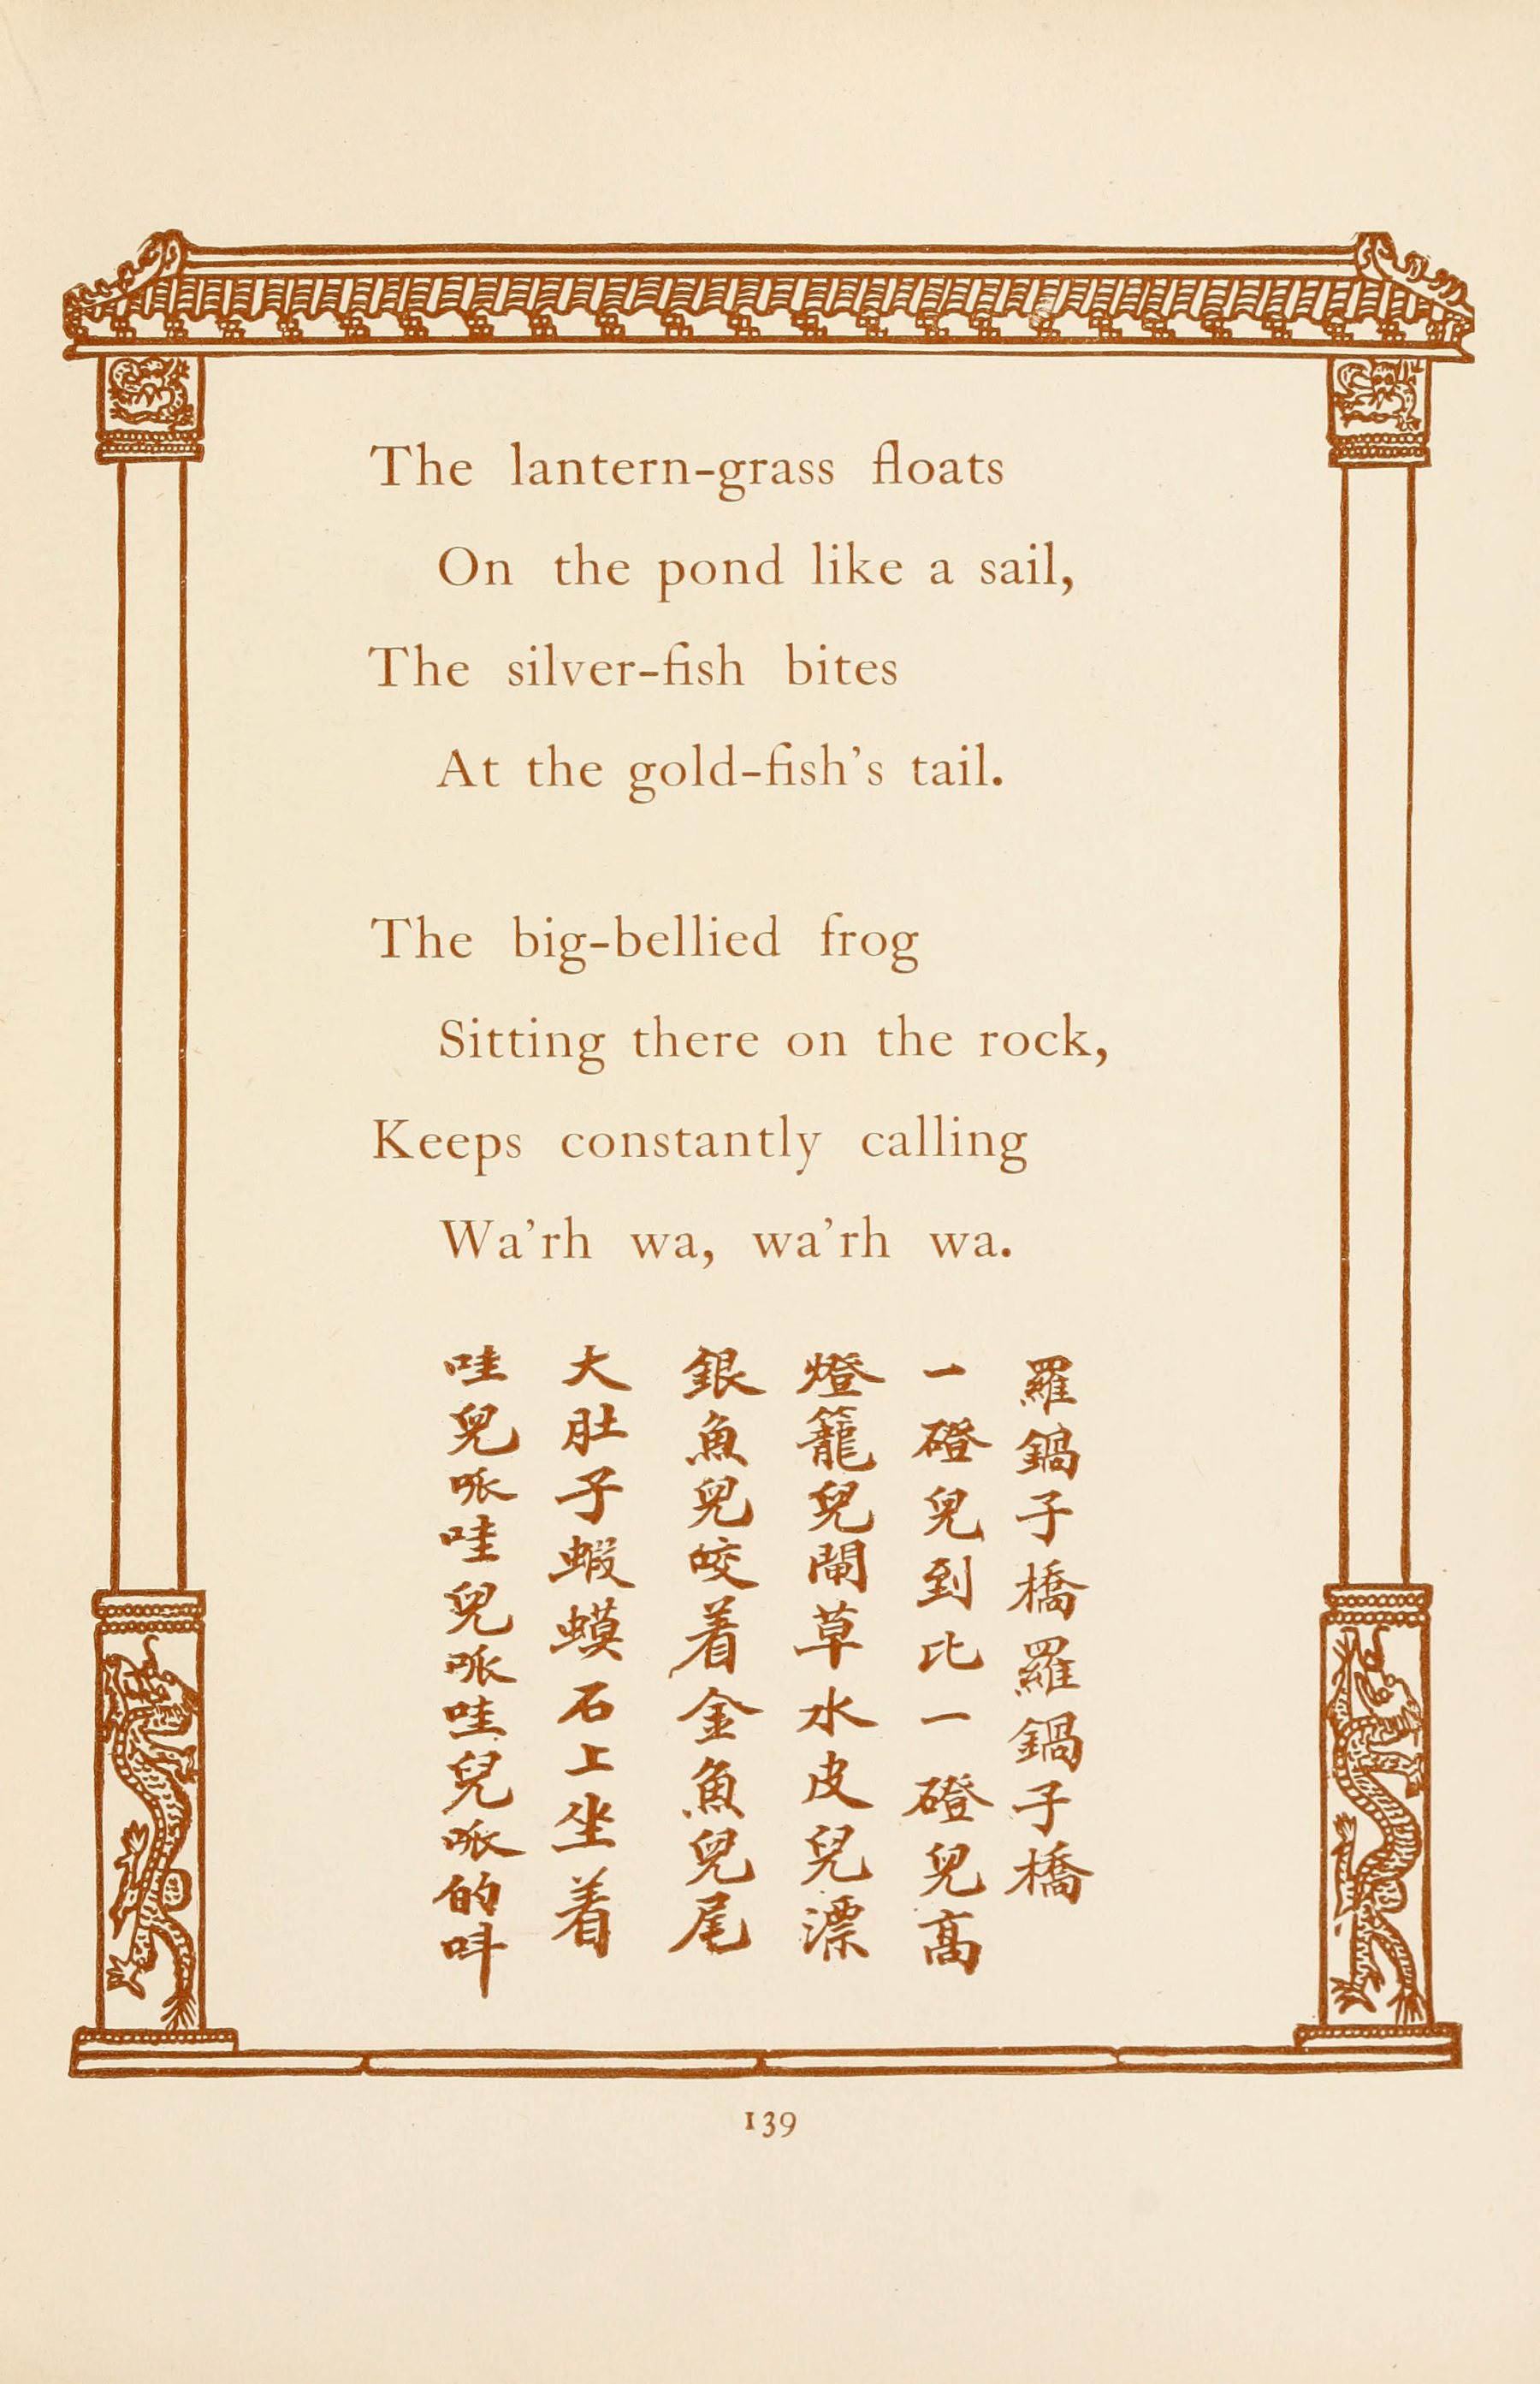 The lantern-grass floats
On the pond like a sail,
The silver-fish bites
At the gold-fish's tail.
The big-bellied frog
Sitting there on the rock,
Keeps constantly calling
Wa'rh wa, wa'rh wa.
羅鍋子橋羅鍋子橋
一磴兒到比一磴兒高
燈籠兒閘草水皮兒漂
銀魚兒咬着金魚兒尾
大肚子蝦蟆石上坐着
哇兒哌哇兒哌哇兒哌的呌
139